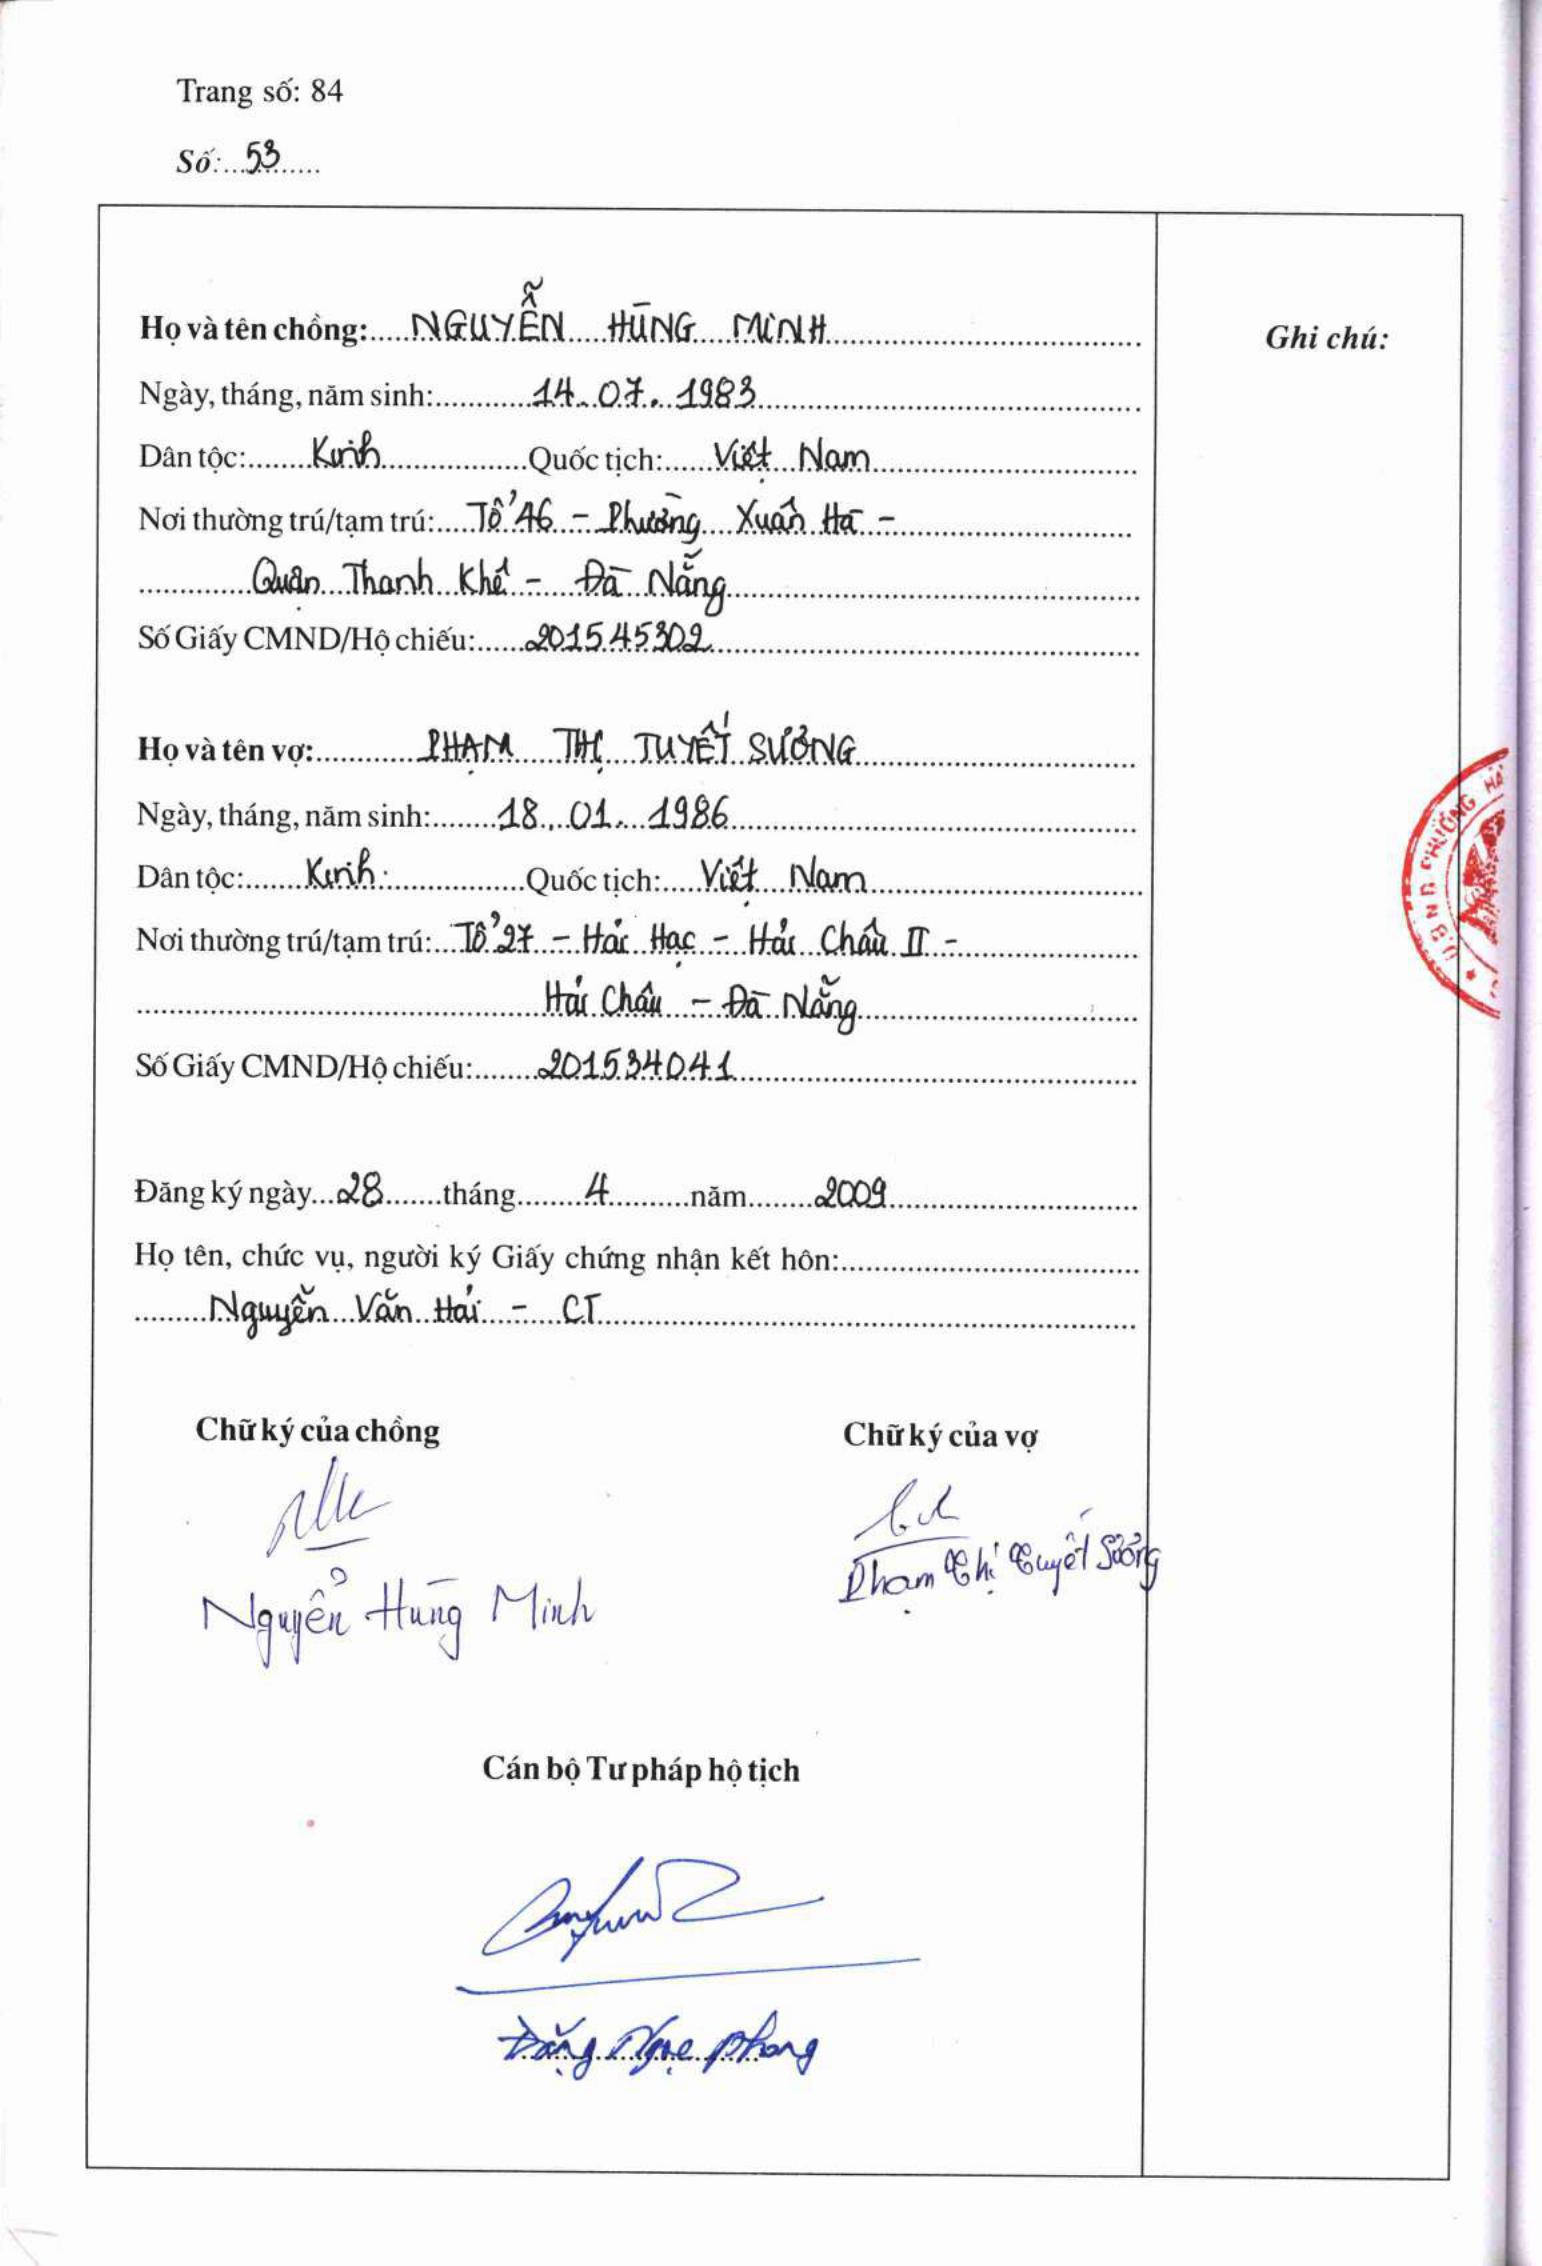 Trang số: 84
Số: 53
Họ và tên chồng: NGUYỄN HÙNG MINH
Ghi chú:
Ngày, tháng, năm sinh: 14. 07. 1983
Dân tộc: Kinh Quốc tịch: Việt Nam
Nơi thường trú/tạm trú: Tổ 46 - Phường Xuân Hà -
Quận Thanh Khê - Đà Nẵng
Số Giấy CMND/Hộ chiếu: 201545302
Họ và tên vợ: PHẠM THỊ TUYẾT SƯƠNG
Ngày, tháng, năm sinh: 18. 01. 1986
Dân tộc: Kinh Quốc tịch: Việt Nam
Nơi thường trú/tạm trú: Tổ 27 - Hải Hạc - Hải Châu II -
Hải Châu - Đà Nẵng
Số Giấy CMND/Hộ chiếu: 201534041
Đăng ký ngày 28 tháng 4 năm 2009
Họ tên, chức vụ, người ký Giấy chứng nhận kết hôn:
Nguyễn Văn Hải - CT
Chữ ký của chồng Chữ ký của vợ
Nguyễn Hùng Minh
Phạm Thị Tuyết Sương
Cán bộ Tư pháp hộ tịch
Đặng Ngọc Phong
U.B.N.D PHƯỜNG HẢ